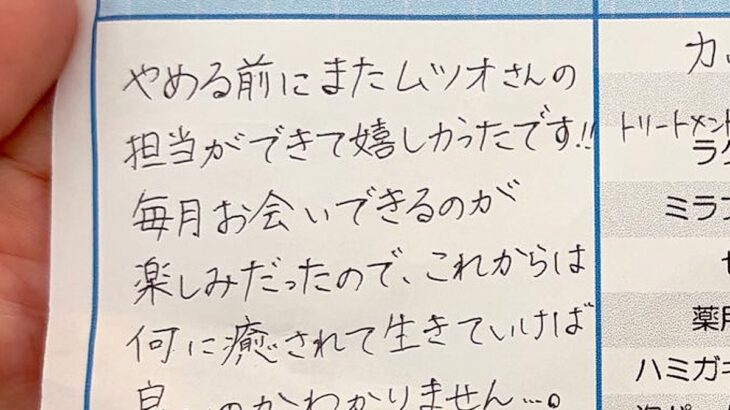 やめる前にまたムツオさんの
担当ができて嬉しかったです!!
毎月お会いできるのが
楽しみだったので、これからは
何に癒されて生きていけば
良いのかわかりません…。
カ
トリートメント
ラク
ミラブ
セ
薬用
ハミガキ